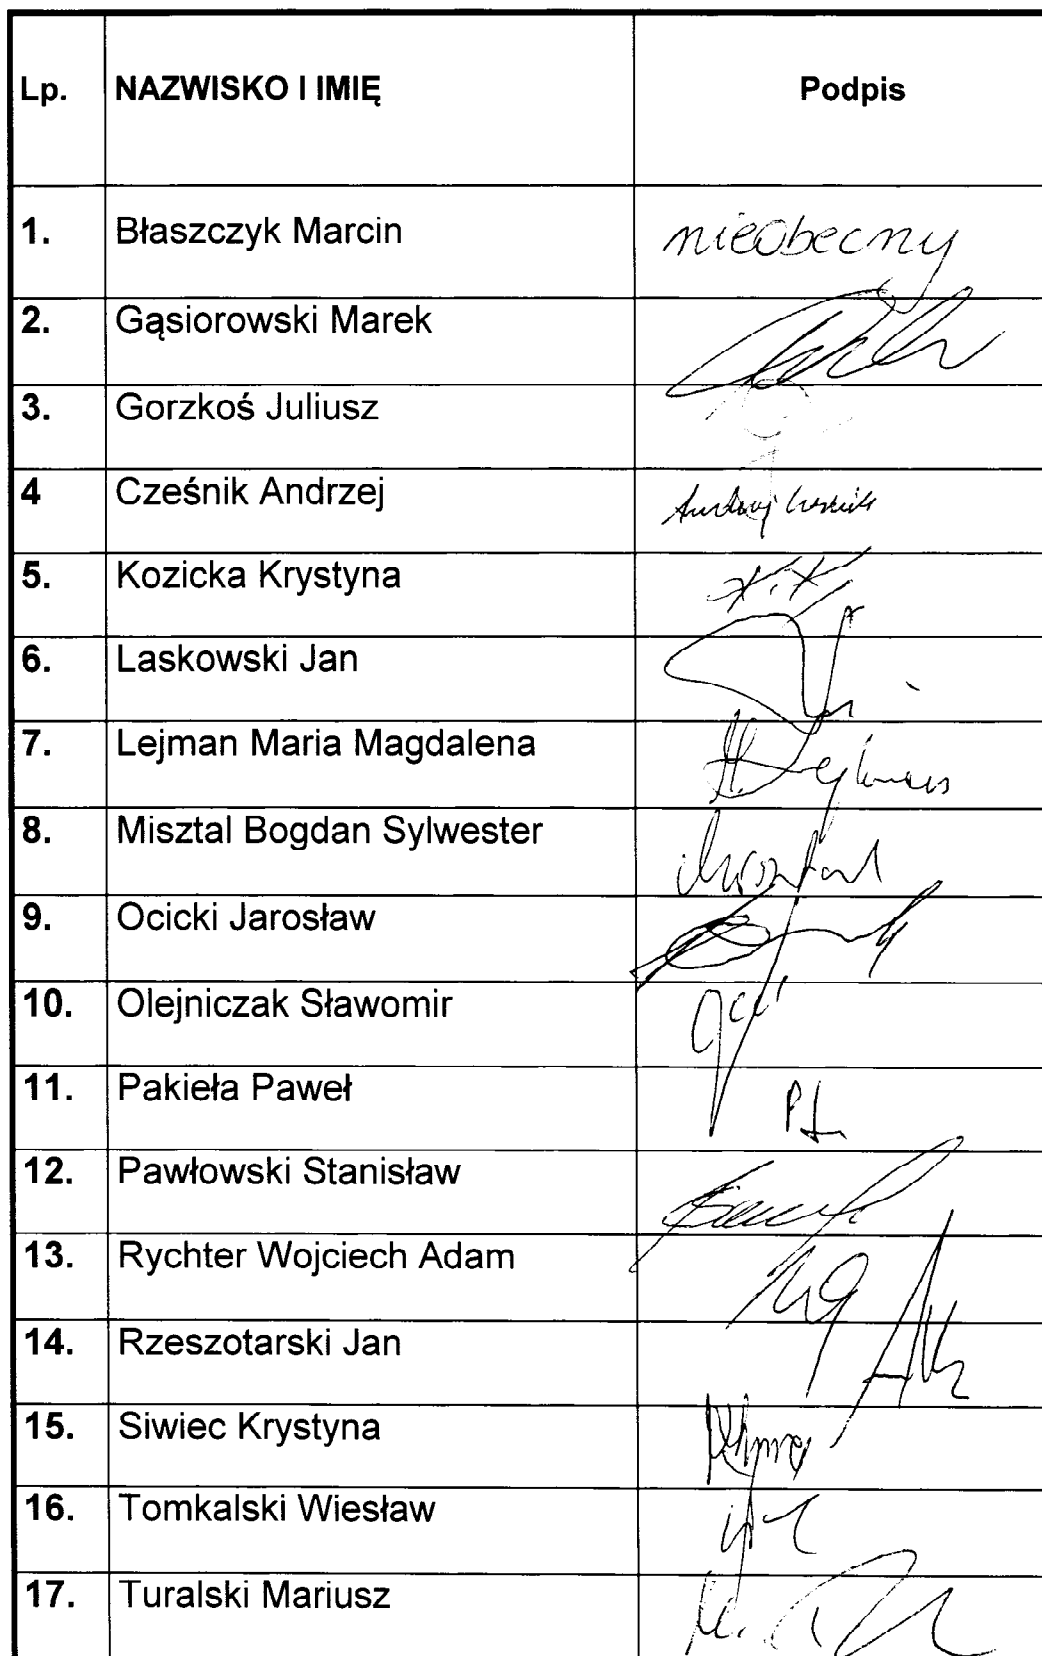 Lp. NAZWISKO I IMIĘ Podpis
1. Błaszczyk Marcin nieobecny
2. Gąsiorowski Marek
3. Gorzkoś Juliusz
4 Cześnik Andrzej Andrzej Cześnik
5. Kozicka Krystyna K.K
6. Laskowski Jan
7. Lejman Maria Magdalena M Lejman
8. Misztal Bogdan Sylwester Misztal
9. Ocicki Jarosław
10. Olejniczak Sławomir
11. Pakieła Paweł
12. Pawłowski Stanisław
13. Rychter Wojciech Adam
14. Rzeszotarski Jan
15. Siwiec Krystyna
16. Tomkalski Wiesław
17. Turalski Mariusz